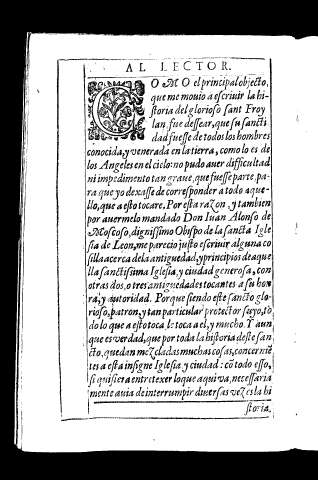 AL LECTOR.
COMO el principal objecto,
que me mouio a escriuir la hi-
storia del glorioso sant Froy
lan, fue dessear, que su sancti
dad fuesse de todos los hombres
conocida, y venerada en la tierra, como lo es de
los Angeles en el cielo: no pudo auer difficultad
ni impedimento tan graue, que fuesse parte, pa-
ra que yo dexasse de corresponder a todo aque-
llo, que a esto tocare. Por esta razon, y tambien
por auermelo mandado Don Iuan Alonso de
Moscoso, dignissimo Obispo de la sancta Igle
sia de Leon, me parecio justo escriuir alguna co
silla acerca de la antiguedad, y principios de aque
lla sanctissima Iglesia, y ciudad generosa, con
otras dos, o tres antiguedades tocantes a su hon
ra, y autoridad. Porque siendo este sancto glo-
rioso, patron, y tan particular protector suyo, to
do lo que a esto toca le toca a el, y mucho. Y aun
que es verdad, que por toda la historia deste san
cto, quedan mezcladas muchas cosas, concernie
tes a esta insigne Iglesia y ciudad: cõ todo esso,
si quisiera entretexer lo que aqui va, necessaria
mente auia de interrumpir diuersas vezes la hi
storia.